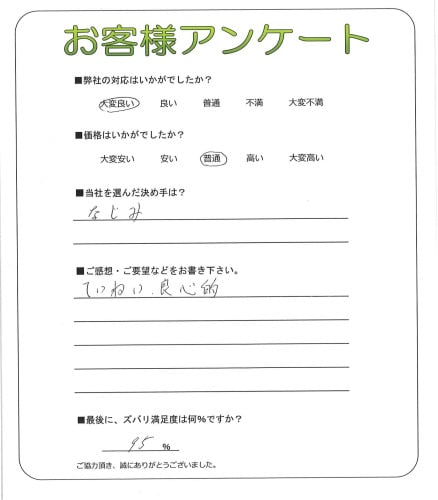 お客様アンケート
■弊社の対応はいかがでしたか？
大変良い 良い 普通 不満 大変不満
■価格はいかがでしたか？
大変安い 安い 普通 高い 大変高い
■当社を選んだ決め手は？
なじみ
■ご感想・ご要望などをお書き下さい。
ていねい、良心的
■最後に、ズバリ満足度は何％ですか？
95 %
ご協力頂き、誠にありがとうございました。